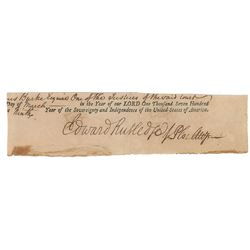 Burke Esquire One of the Justices of the said Court
Day of March in the Year of our LORD One Thousand Seven Hundred
Year of the Sovereignty and Independence of the United States of America.
Edward Rutledge